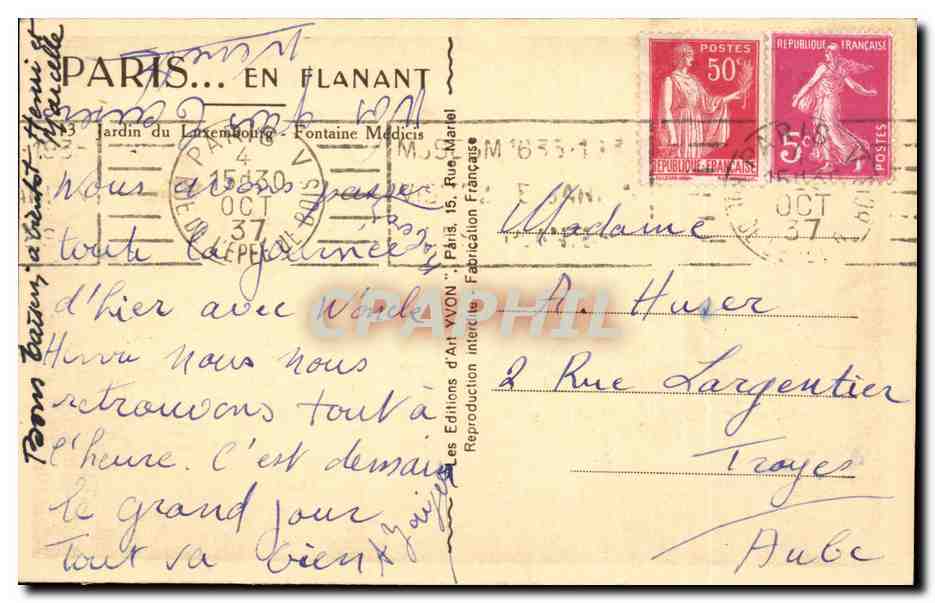 PARIS... EN FLANANT
Jardin du Luxembourg - Fontaine Médicis
PARIS V
4
15H30
OCT
37
R. DE L'EPEE DE BOIS
Nous avons passé
toute la journée
d'hier avec l'oncle
nous nous
retrouvons tout à
l'heure. C'est demain
le grand jour
Tout va bien
Bons baisers à bientôt Henri et
Marcelle
Les Editions d'Art "YVON", Paris, 15, Rue Martel
Reproduction interdite. Fabrication Française
POSTES
50c
REPUBLIQUE-FRANÇAISE
REPUBLIQUE FRANÇAISE
5c
POSTES
OCT
37
Madame
A. Huser
2 Rue Largentier
Troyes
Aube
CPAPHIL